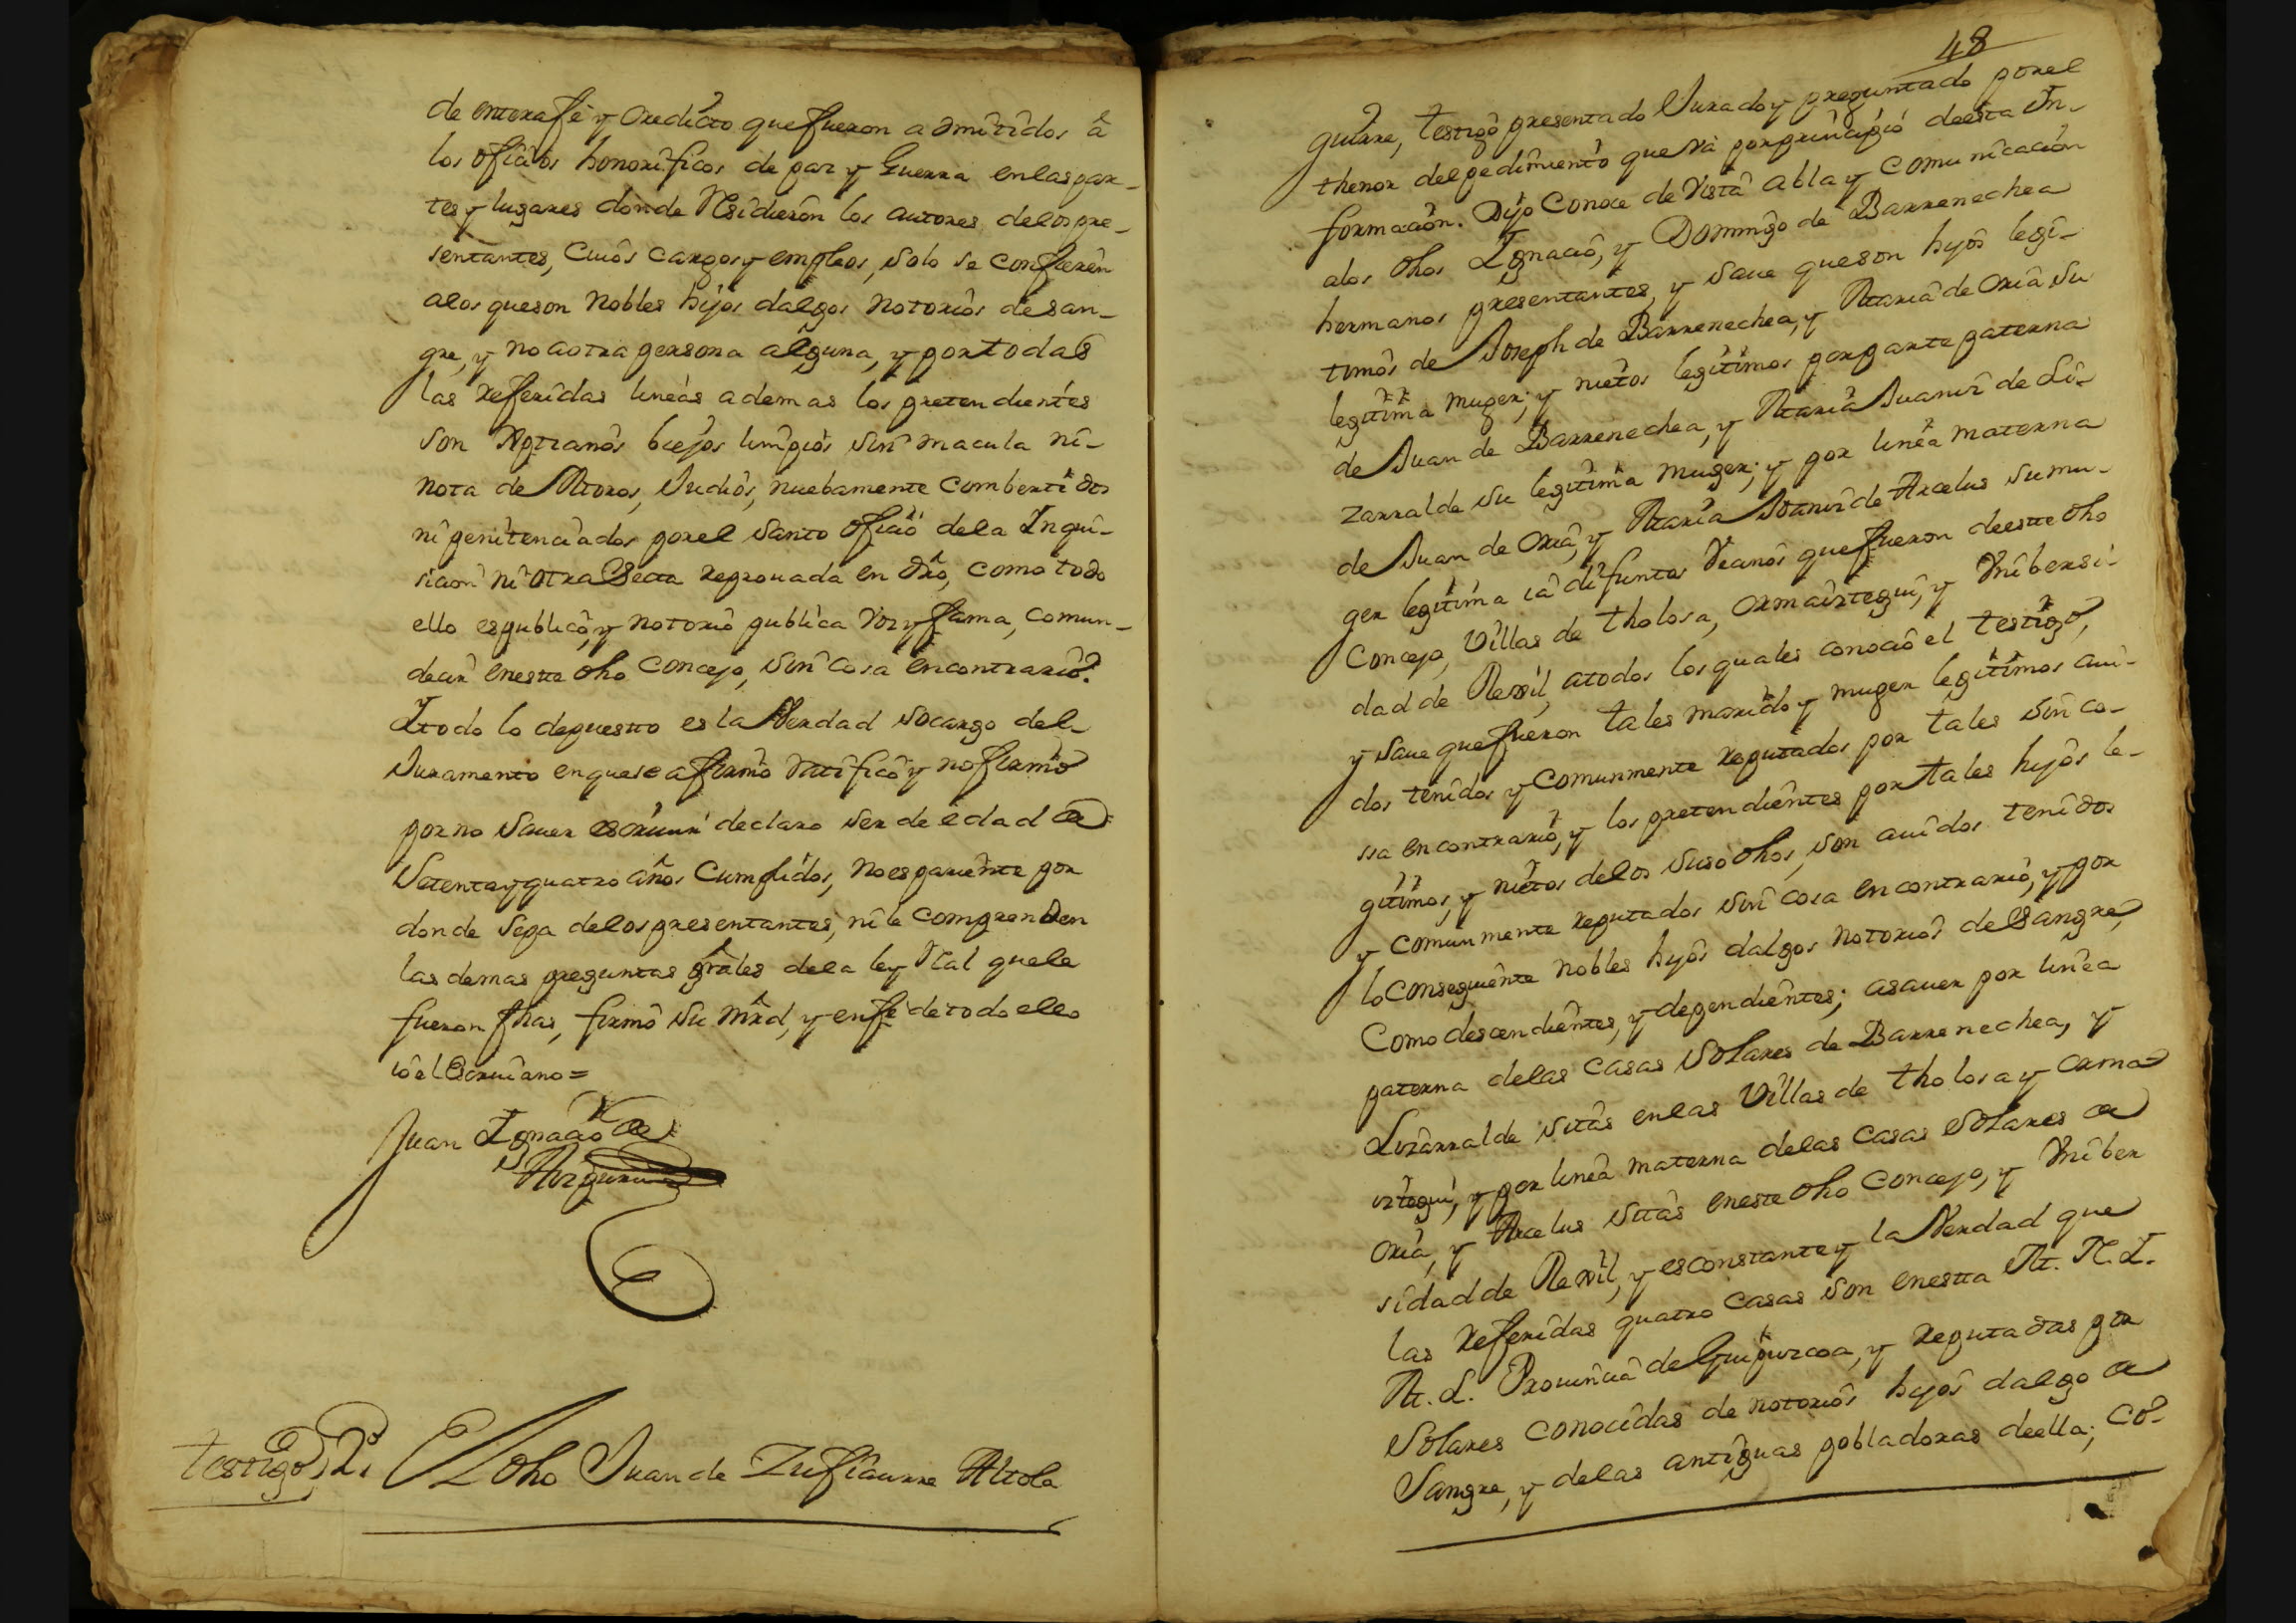 de entera fe y credicto que fueron admitidos â
los oficios honorificos de paz y Guerra en las par-
tes y lugares donde Residieron los autores delos pre-
sentantes, Cuios cargos y empleos, solo se confieren
alos que son Nobles hijos dalgos notorios de san-
gre, y no aotra persona alguna, y por todas
las referidas lineas ademas los pretendientes
son Xptianos biejos limpios sin macula ni-
nota de Moros, Judios, nuebamente combertidos
ni penitenciados por el Santo oficio dela Inqui-
sicion ni otra Secta reprouada en dro, como todo
ello es publico, y notorio publica voz y fama, comun-
decir en este dho concejo, sin cosa en contrario.
I todo lo depuesto es la Verdad socargo del-
Juramento en que se afirmo Ratificò y no firmo
por no sauer escriuir declaro ser de edad de
Setenta y quatro años Cumplidos, no es pariente por
donde Sepa delos presentantes, ni le comprenden
las demas preguntas grâles dela ley Real que le
fueron fhas, firmò su mrd, y en fe de todo ello
io el Escriuano =
Juan Ignacio de
testigo 2.º El dho Juan de Zufiaurre Altola
48
guirre, testigo presentado Jurado y preguntado por el
thenor del pedimiento que va por principio de esta In-
formacion. Dijo Conoce de Vista abla y comunicacion
alos dhos Ignacio, y Domingo de Barrenechea
hermanos presentantes, y saue que son hijos legi-
timos de Joseph de Barrenechea, y Maria de Oria su
legitima muger; y nietos legitimos por parte paterna
de Juan de Barrenechea, y Maria Juaniz de Li-
zarralde su legitima muger; y por linea materna
de Juan de Oria, y Maria Joaniz de Arcelus su mu-
ger legitima ià difuntos Vecinos que fueron de este dho
Concejo, Villas de tholosa, ormaiztegui, y Vnibersi-
dad de Rexil, atodos los quales conociò el testigo,
y saue que fueron tales marido y muger legitimos aui-
dos tenidos y comunmente reputados por tales sin co-
sa en contrario, y los pretendientes por tales hijos le-
gitimos, y nietos delos suso dhos, son auidos tenidos
y comunmente reputados sin cosa en contrario, y por
lo conseguiente nobles hijos dalgos notorios de Sangre,
Como descendientes, y dependientes; asauer por linea
paterna delas casas Solares de Barrenechea, y
Lizarralde sitas en las Villas de tholosa y orma-
iztegui, y por linea materna delas casas Solares de
oria, y Arcelus sitas en este dho Concejo, y Vniber
sidad de Rexil, y es constante y la Verdad que
las referidas quatro casas son en esta M. N. I.
M. L. Prouincia de Guipuzcoa, y reputadas por
Solares conocidas de notorios hijos dalgo de
Sangre, y delas antiguas pobladoras de ella; co-